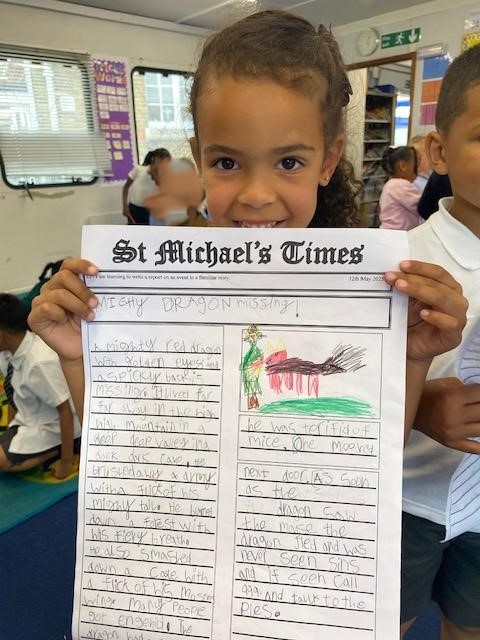 St Michael's Times
I am learning to write a report on an event in a familiar story.
12th May 2025
MIGHY DRAGON missing!
a mighty red dragon
with golden eyes and
a spicky back is
missing. It lived far
far away in the high
high mountain in a
deep deep valley in a
dark dark cave. He
brushed awy a army
with a flick of his
mighty talie. He burned
down a forest with
his firey breath.
He also smashed
down a casle with
a flick of his
wings. Many People
got The
dragon had
he was terifid of
mice. One mooved
next door. AS soon
as the
dragon saw
the mouse the
dragon fled and was
never seen sins
and if seen call
and talk to the
Fire exit